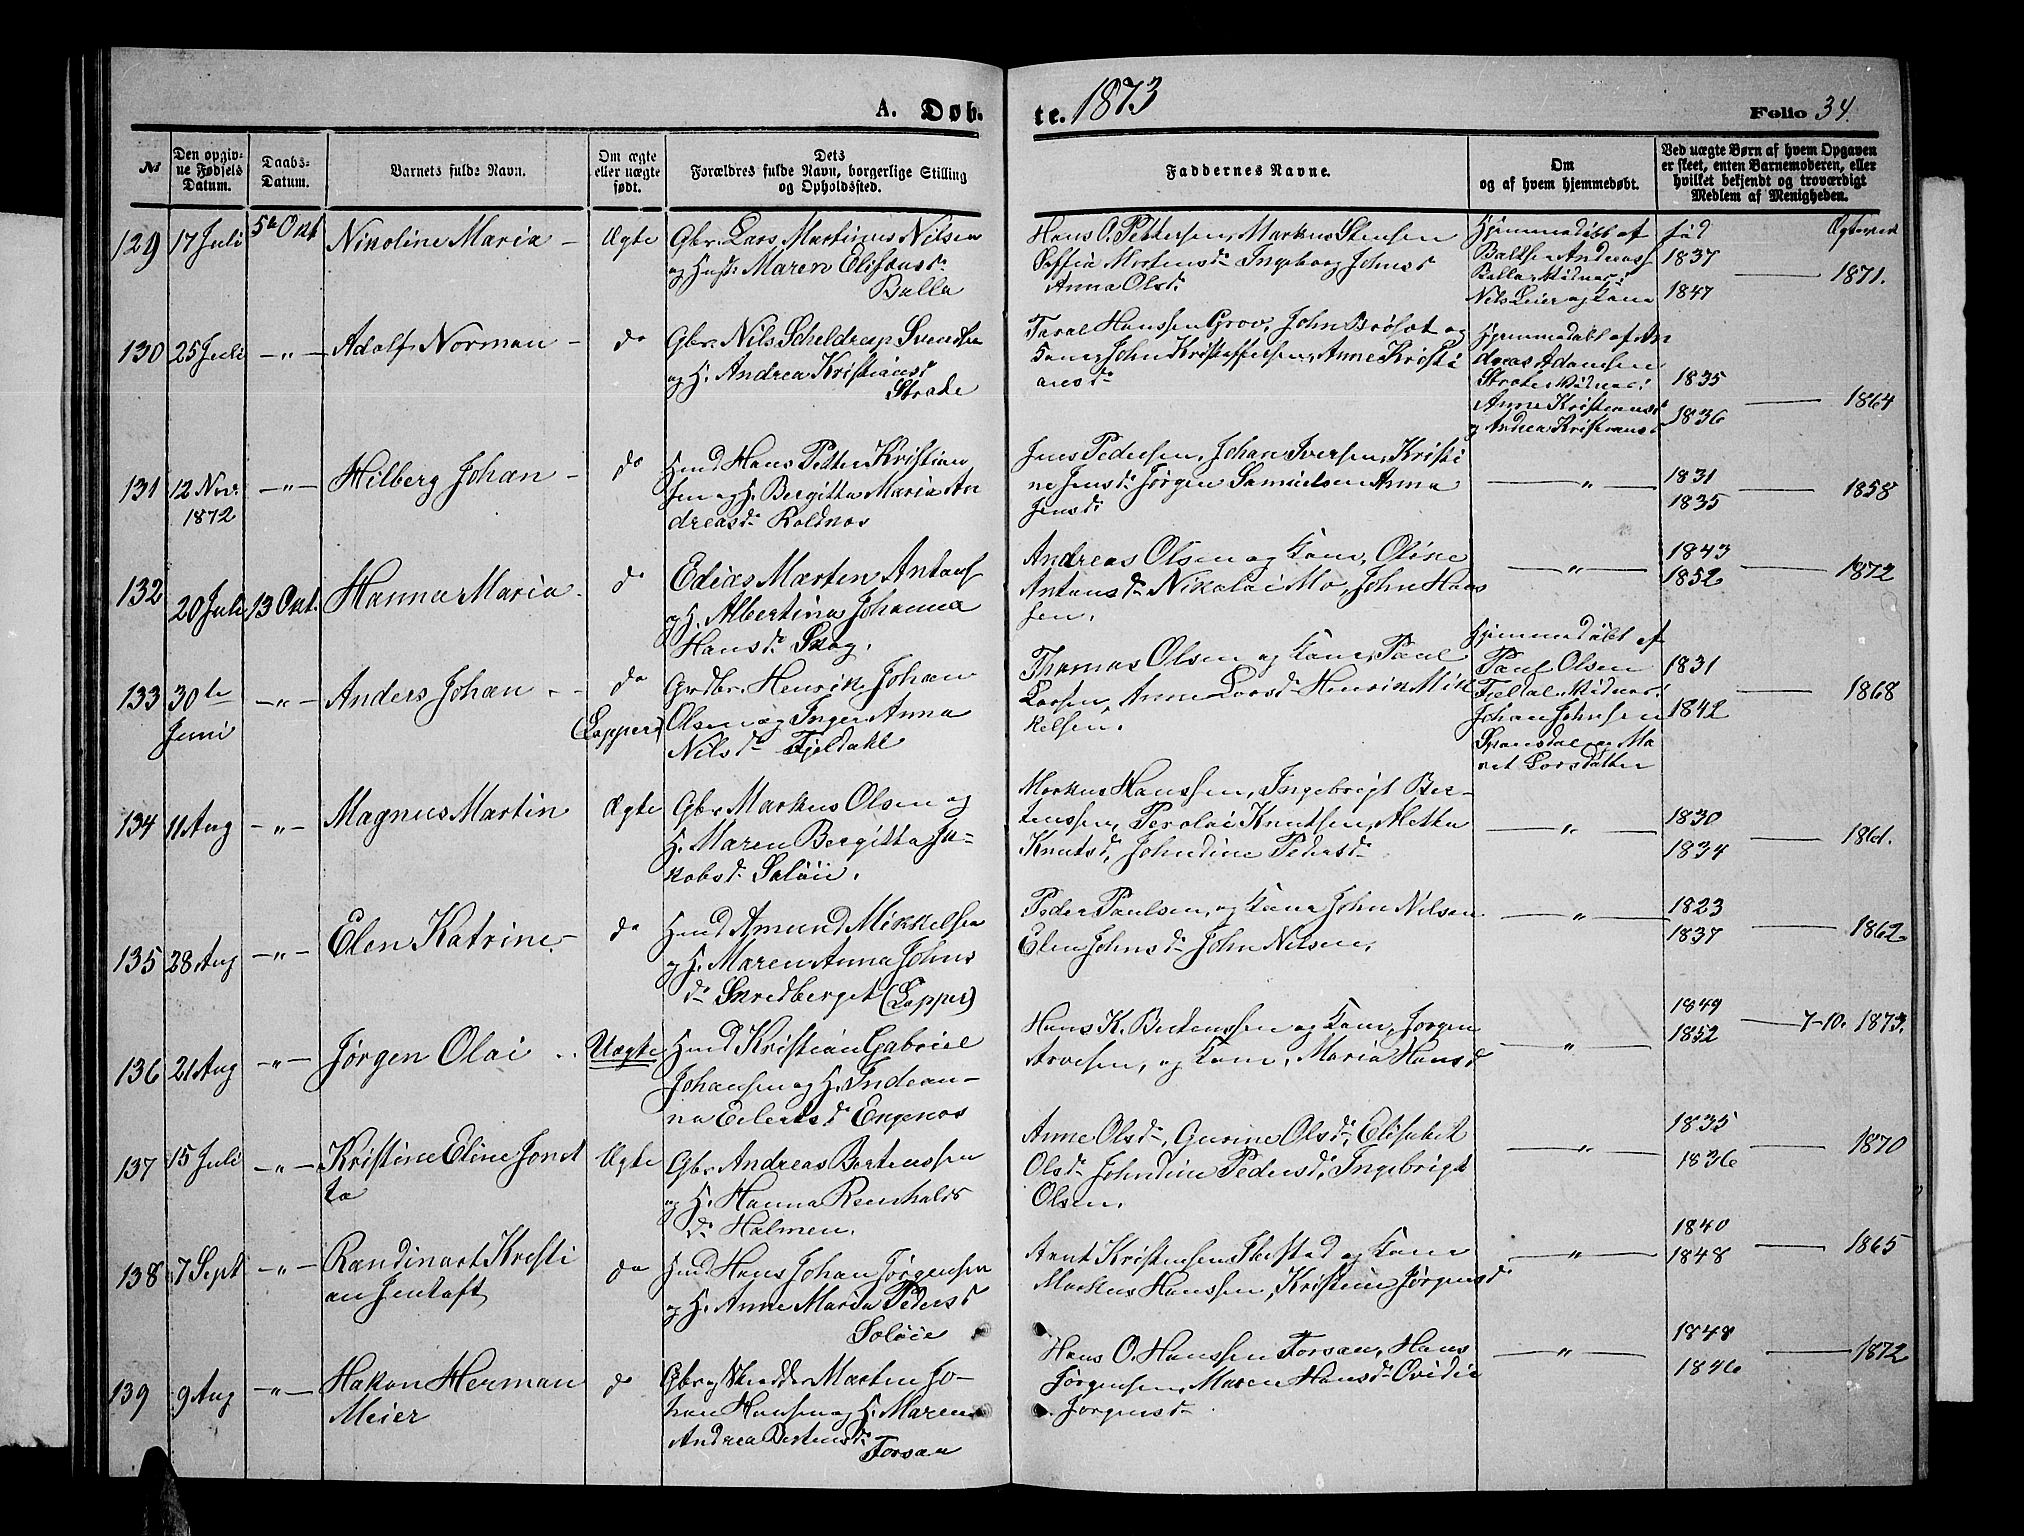 A. Døb-
te. 1873
Folio 34.
№
Den opgiv-
ne Fødsels
Datum.
Daabs-
Datum.
Barnets fulde Navn.
Om ægte
eller uægte
født.
Dets
Forældres fulde Navn, borgerlige Stilling
og Opholdssted.
Faddernes Navne.
Om
og af hvem hjemmedøbt.
Ved uægte Børn af hvem Opgaven
er skeet, enten Barnemoderen, eller
hvilket bekjendt og troværdigt
Medlem af Menigheden.
129 17 Juli 5te Okt Nikoline Maria – Ægte
Gbr. Lars Martinus Nilsen
og Hust. Maren Elisausd.
Balla
Hans O. Pettersen, Markus Stensen
Mortensd. Ingeborg Johnsd
Anna Olsd.
Hjemmedøbt af
Balthser Andreass
Balla, Vidner:
Nils Leier og Kone
fød
1837
1847 — 1871.
130 25 Juli –"– Adolf Norman – do
Gbr. Nils Scheldrup Svendsen
og H. Andrea Kristiansd
Strade
Taral Hanssen Grov, John Brøset og
Kone, John Kristoffersen, Anne Kristi
ansd.
Hjemmedøbt af An
dreas Adamsen
Strate, Vidner:
Anne Kristiansd
og Andrea Kristiansd
1835
1836 — 1864
131 12 Nov.
1872 –"– Hilberg Johan – do
Hmd Hans Petter Kristian
sen og H. Bergitta Maria An
dreasd. Roldnos
Jens Pedersen, Johan Iversen, Kristi
ne Jensd. Jørgen Samuelsen Anna
Jensd.
—"—
1831
1835 — 1858
132 20 Juli 13 Okt. Hanna Maria – do
Edias Marten Antons
og H. Albertina Johanna
Hansd. Skog.
Andreas Olsen og Kone, Oline
Antonsd. Nikolai Mo, John Hans
sen.
—"—
1843
1852 — 1872
133 30te
Juni –"– Anders Johan – do
(Lapper)
Grdbr. Henrik Johan
Olsen og Inger Anna
Nilsd. Fjeldahl
Thomas Olsen og Kone, Paul
Larsen, Anne Larsd. Henrik Mik
kelsen.
Hjemmedøbt af
Paul Olsen
Fjeldal, Vidner:
Johan Johnsen
Spansdal og Ma
ret Larsdatter
1831
1842 — 1868
134 11 Aug –"– Magnus Martin Ægte
Gbr. Markus Olsen og
H. Maren Bergitta Ja-
kobsd. Saløie.
Markus Hanssen, Ingebrigt Ber-
tenssen, Perolai Knutsen, Metha
Knutsd, Johndine Pedersd.
—"—
1830
1834 — 1861.
135 28 Aug –"– Elen Katrine – do
Hmd Amund Mikkelsen
og H. Maren Anna Johns
d. Snredberget (Lapper)
Peder Paulsen, og Kone John Nilsen
Elen Johnsd. John Nilsen,
—"—
1823
1837 — 1862
136 21 Aug –"– Jørgen Olai Uægte
Hmd Kristian Gabriel
Johansen og H. Indean-
na Eilertsd. Engenos
Hans K. Bertenssen og Kone, Jørgen
Arvesen, og Kone, Maria Hansd
—"—
1849
1852 — 7-10. 1873.
137 15 Juli –"– Kristine Eline Jonet
ta Ægte
Gbr. Andreas Bertenssen
og H. Hanna Reinholds
d. Holmen.
Anne Olsd. Gurine Olsd. Elisabet
Olsd. Johndine Pedersd. Ingebrigt
Olsen.
—"—
1835
1836 — 1870
138 7 Sept –"– Randinart Kristi
an Jentoft do
Hmd Hans Johan Jørgensen
og H. Anne Maria Pedersd
Soløie
Arnt Kristensen Ibestad og Kone
Markus Hanssen, Kristine Jørgensd.
—"—
1840
1848 — 1865
139 9 Aug –"– Hakon Herman
Meier d.
Gbr og Skredder Marten Jo-
han Hansen og H. Maren
Andrea Bertensd.
Forsaa
Hans O. Hanssen Forsaa, Hans
Jørgensen, Maren Hansd. Ovidie
Jørgensd.
—"—
1848
1846 — 1872